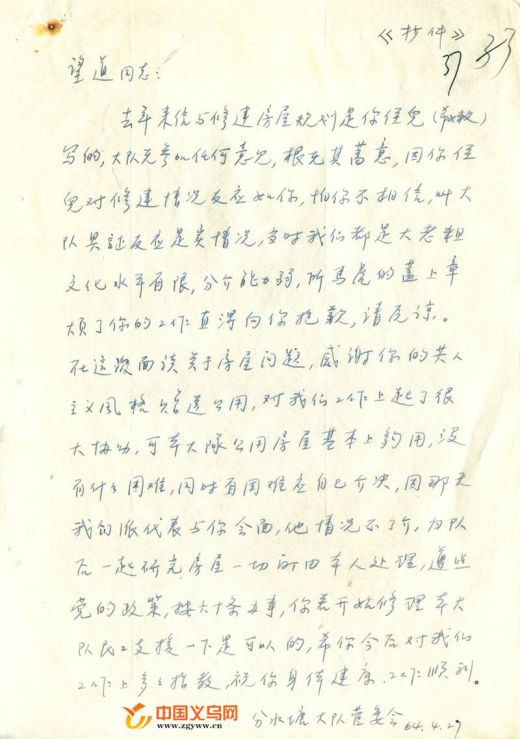 《抄件》
37 33
望道同志：
去年来信与修建房屋规划是你侄儿（　）
写的，大队无参加任何意见，根无其蓄意，因你侄
儿对修建情况反应如你，怕你不相信，叫大
队具証反应是实情况，当时我们都是大老粗
文化水平有限，分介能力弱，所馬虎的蓋上章
烦了你的工作真得向你抱歉，請原諒。
在这次面谈关于房屋问题，感谢你的共人
主义風格 送公用，对我们工作上起了很
大协助，可本大隊公用房屋基本上夠用，没
有什么困难，同时有困难应自己介决，因那天
我们派代表与你会面，他情况不了介，为队
后一起研究房屋一切可由本人处理，遵照
党的政策，按六十条办事，你若开始修理本大
队民工支援一下是可以的，希你今后对我们
工作上多多指教，祝你身体健康，工作顺利。
分水塘大队管委会 64.4.27
中国义乌网
www.zgyww.cn